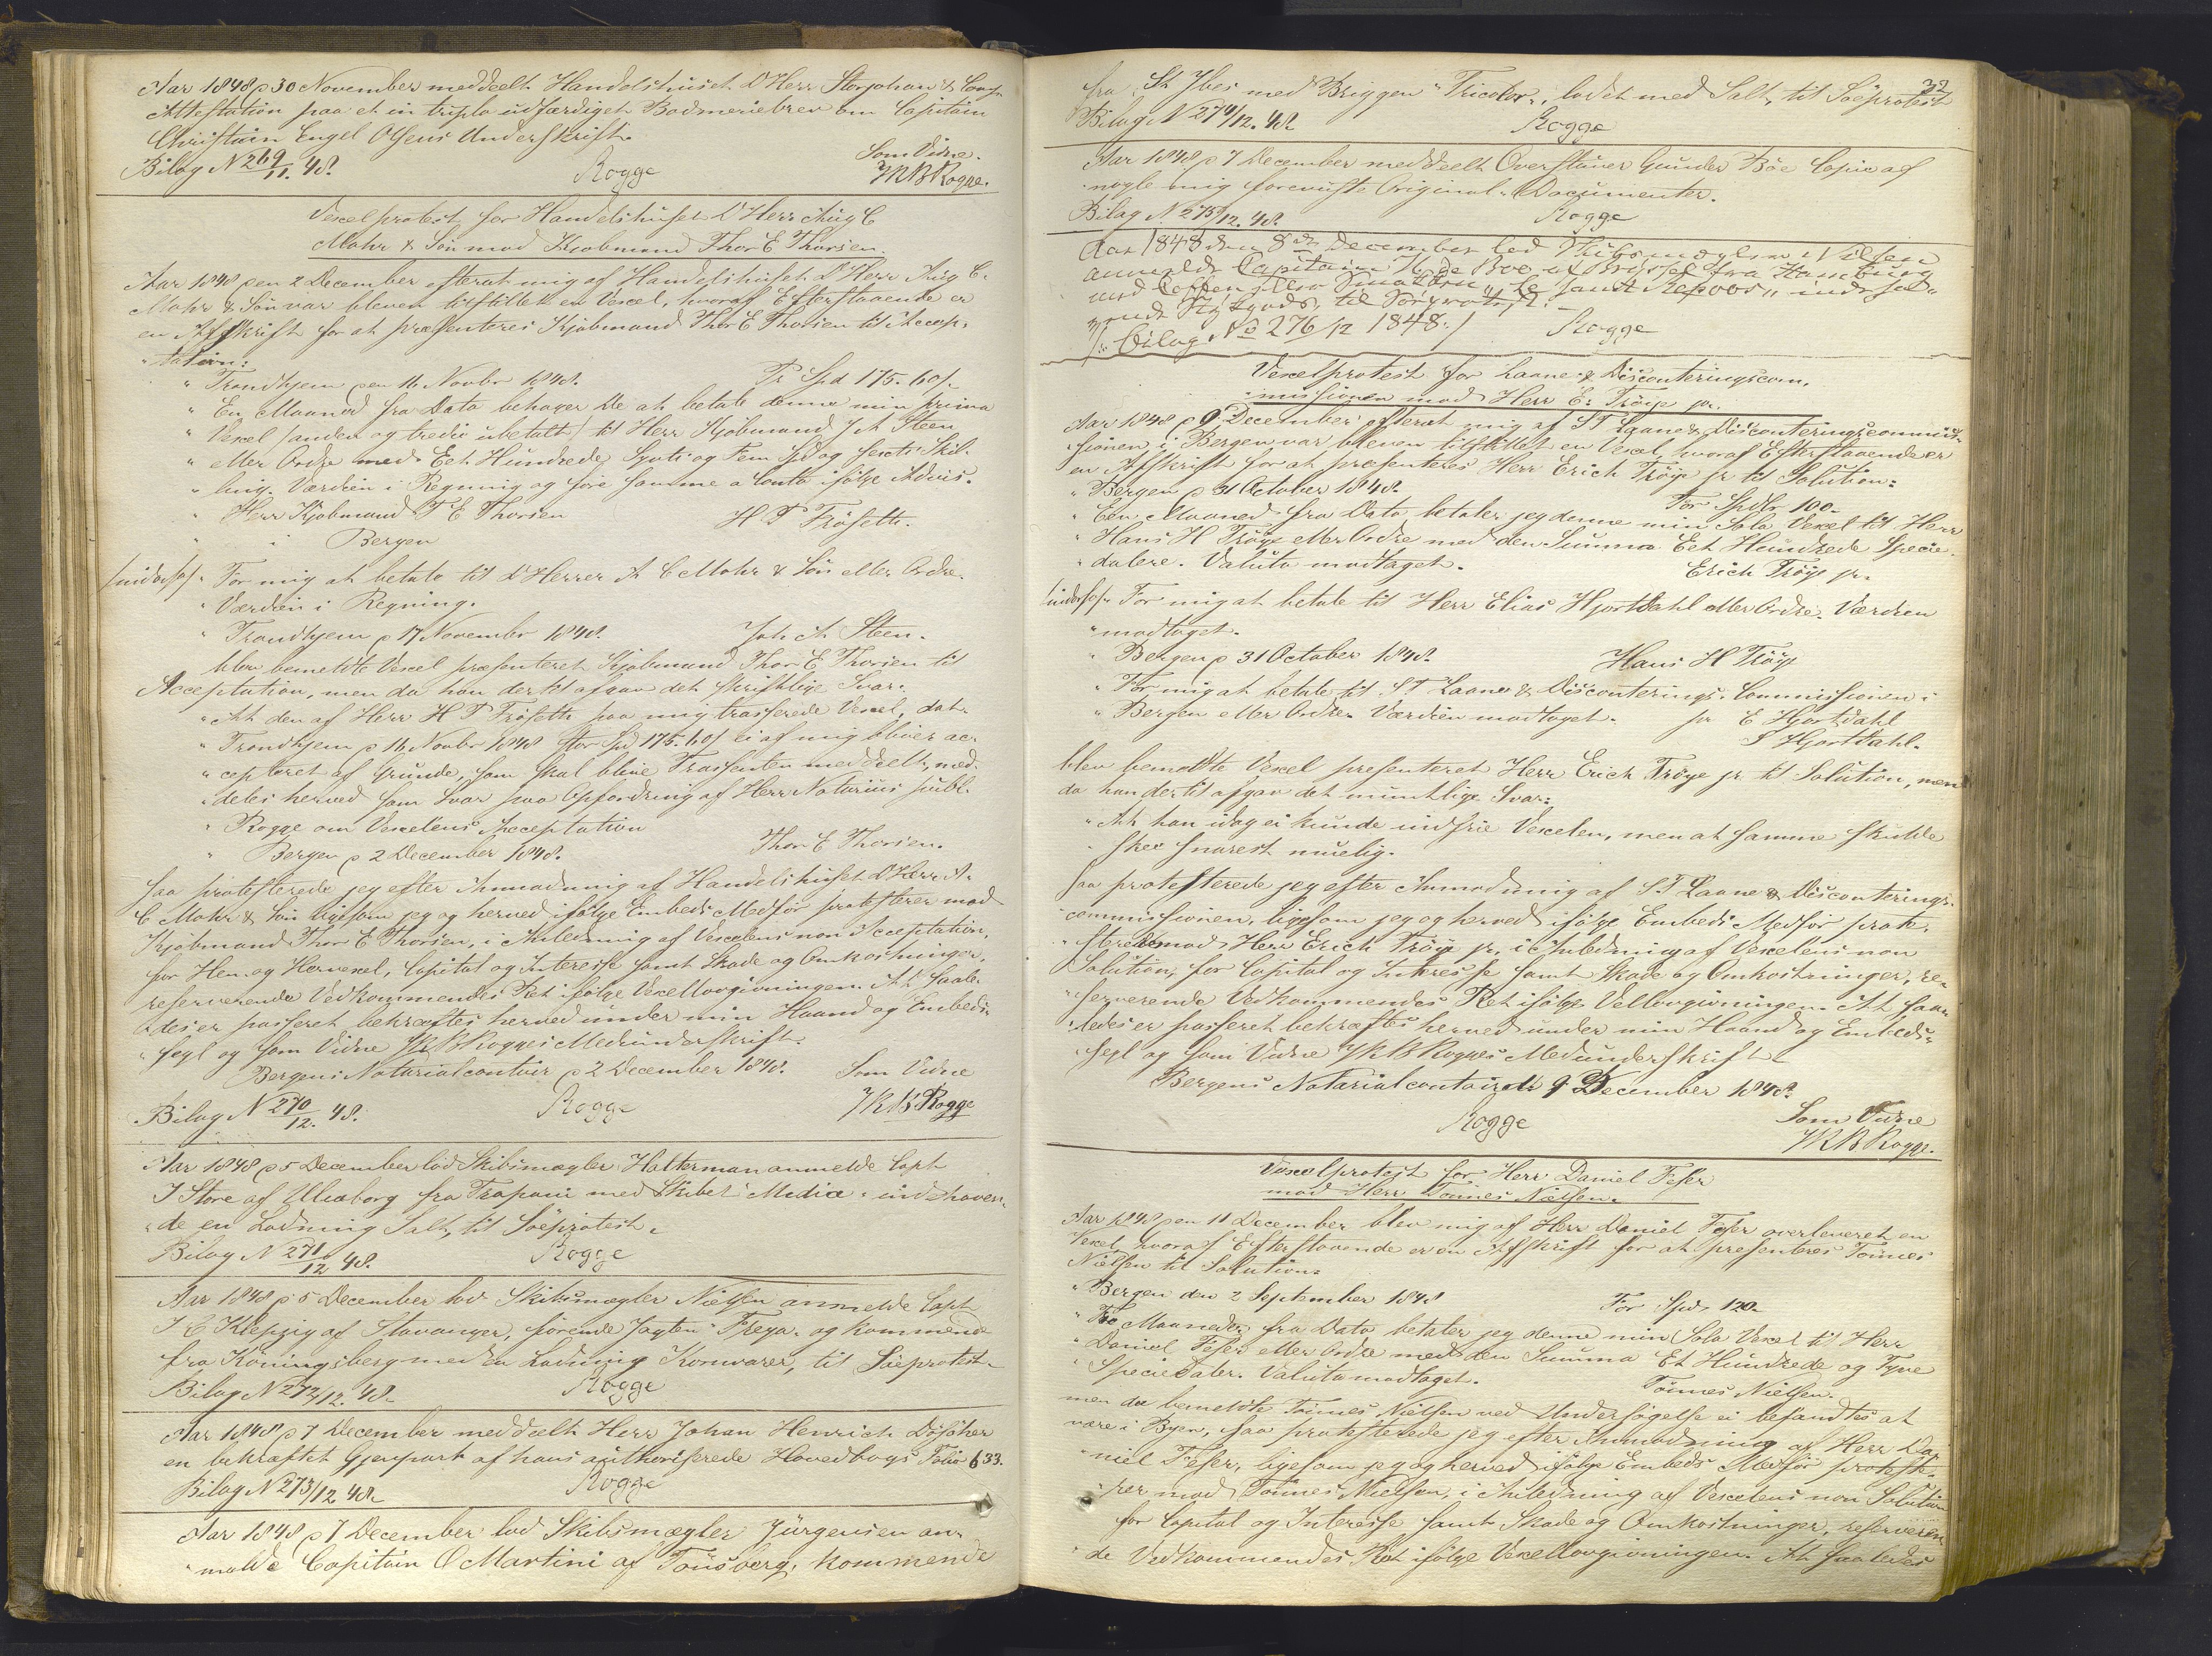 Aar 1848 p 30 November meddeelt Handelshuset D'Herr Storjohan & Comp
Attestation paa et in triplo udfærdiget Bodmeriebrev om Capitain
Christian Engel Olsens Underskrift.
Bilag N 269/11. 48. Rogge Som Vidne.
JKB Rogge.
Vexelprotest for Handelshuset D'Herr Aug C
Mohr & Søn mod Kjøbmand Thor E Thorsen
Aar 1848 den 2 December efterat mig af Handelshuset D'Herr Aug C.
Mohr & Søn var bleven tilstillet en Vexel, hvoraf Efterstaaende er
en Afskrift for at præsenteres Kjøbmand Thor E Thorsen til Accep-
"tation:
" Trondhjem den 16 Novbr 1848. Pr Spd 175. 60/-
" En Maaned fra Dato behager De at betale denne min prima
" Vexel (anden og tredie ubetalt) til Herr Kjøbmand J A Steen
" eller Ordre med Eet Hundrede Sytti og Fem Spd og sexti Skil-
" ling. Værdien i Regning og føre samme a Conto ifølge Advis.
" Herr Kjøbmand T E Thorsen H P Frøseth.
" i Bergen
/indors/ " For mig at betale til D'Herrer A C Mohr & Søn eller Ordre.
" Værdien i Regning.
" Trondhjem p 17 November 1848. Joh A Steen.
blev bemeldte Vexel præsenteret Kjøbmand Thor E Thorsen til
Acceptation, men da han dertil afgav det skriftlige Svar:
" At den af Herr H P Frøseth paa mig trasserede Vexel, dat.
" Trondhjem p 16 Novbr 1848 stor Spd 175. 60/ ei af mig bliver ac-
" cepteret af Grunde, som skal blive Trassenten meddeelt, med-
" deles herved som Svar paa Opfordring af Herr Notarius publ.
" Rogge om Vexelens Acceptation
" Bergen p 2 December 1848. Thor E Thorsen.
saa protesterede jeg efter Anmodning af Handelshuset D'Herr A.
C Mohr & Søn ligesom jeg og herved ifølge Embeds Medfør protesterer mod
Kjøbmand Thor E Thorsen, i Anledning af Vexelens non Acceptation,
for Hen- og Hervexel, Capital og Interesse samt Skade og Omkostninger,
reserverende Vedkommendes Ret ifølge Vexellovgivningen. At saale-
"des er passeret bekræftes herved under min Haand og Embeds-
" segl og som Vidne JKB Rogges Medunderskrift.
Bergens Notarialcontoir p 2 December 1848. Som Vidne
Bilag N 270/12. 48. Rogge JKB Rogge
Aar 1848 p 5 December lod Skibsmægler Halterman anmelde Capt
J Store af Uleaborg fra Trapani med Skibet "Media" indehaven-
"de en Ladning Salt, til Søeprotest.
Bilag N 271/12 48. Rogge
Aar 1848 p 5 December lod Skibsmægler Nielsen anmelde Capt
J C Klepzig af Stavanger, førende Jagten "Freya" og kommende
fra Köningsberg med en Ladning Kornvarer, til Søeprotest.
Bilag N 272/12. 48. Rogge
Aar 1848 p 7 December meddeelt Herr Johan Henrich Döscher
en bekræftet Gjenpart af hans authoriserede Hovedbogs Folio 633.
Bilag N 273/12 48. Rogge
Aar 1848 p 7 December lod Skibsmægler Jürgensen an-
"melde Capitain O Martini af Tønsberg, kommende
32
fra St Ybes med Briggen "Tricolor", ladet med Salt, til Søeprotest
Bilag N 274/12. 48. Rogge
Aar 1848 p 7 December meddeelt Overstuer Gunder Böe Copie af
nogle mig foreviiste Original-Documenter.
Bilag N 275/12. 48. Rogge
Aar 1848 den 8de December lod Skibsmægler Nilsen
anmelde Capitain H. de Boe af Brüssel fra Hamburg
med "Le Saut Repoos"
til Søeprotest.
/: Bilag No 276/12 1848:/ Rogge
Vexelprotest for Laane & Disconteringscom-
"missionen mod Herr E: Trøye jr.
Aar 1848 p 9 December efterat mig af S T Laane & Disconteringscommis-
"sionen i Bergen var bleven tilstillet en Vexel, hvoraf Efterstaaende er
en Afskrift for at præsenteres Herr Erich Trøye jr til Solution:
" Bergen p 31 October 1848. For Spdlr 100.
" Een Maaned fra Dato betaler jeg denne min Sola Vexel til Herr
" Hans H Trøye eller Ordre med den Summa Eet Hundrede Specie-
" dalere. Valuta modtaget. Erich Trøye jr.
/indors/ " For mig at betale til Herr Elias Hjortdahl eller Ordre. Værdien
" modtaget.
" Bergen p 31 October 1848. Hans H Trøye
" For mig at betale til S T Laane & Disconterings-Commissionen i
" Bergen eller Ordre. Værdien modtaget. pr E Hjortdahl
T Hjortdahl.
blev bemeldte Vexel presenteret Herr Erich Trøye jr til Solution, men
da han dertil afgav det mundtlige Svar:
" At han idag ei kunde indfrie Vexelen, men at samme skulde
" skee snarest muelig.
saa protesterede jeg efter Anmodning af S T Laane & Disconterings-
commissionen, ligesom jeg og herved ifølge Embeds Medfør prote-
"sterer mod Herr Erich Trøye jr, i Anledning af Vexelens non
Solution, for Capital og Interesse samt Skade og Omkostninger, re-
"serverende Vedkommendes Ret ifølge Vexellovgivningen. At saa-
"ledes er passeret bekræftes herved under min Haand og Embeds-
segl og som Vidne JKB Rogges Medunderskrift
Bergens Notarialcontoir d. 9 December 1848.
Rogge Som Vidne
JKB Rogge.
Vexelprotest for Herr Daniel Feser
mod Herr Tönnes Nielsen.
Aar 1848 den 11 December blev mig af Herr Daniel Feser overleveret en
Vexel, hvoraf Efterstaaende er en Afskrift for at presenteres Tönnes
Nielsen til Solution:
" Bergen den 2 September 1848 For Spd. 120.
" Tre Maaneder fra Dato betaler jeg denne min Sola Vexel til Herr
" Daniel Feser eller Ordre med den Summa Et Hundrede og Tyve
" Speciedaler. Valuta modtaget. Tönnes Nielsen.
men da bemeldte Tönnes Nielsen ved Undersøgelse ei befandtes at
være i Byen, saa protesterede jeg efter Anmodning af Herr Da-
"niel Feser, ligesom jeg og herved ifølge Embeds Medfør proteste-
"rer mod Tönnes Nielsen, i Anledning af Vexelens non Solution
for Capital og Interesse samt Skade og Omkostninger, reserveren-
"de Vedkommendes Ret ifølge Vexellovgivningen. At saaledes